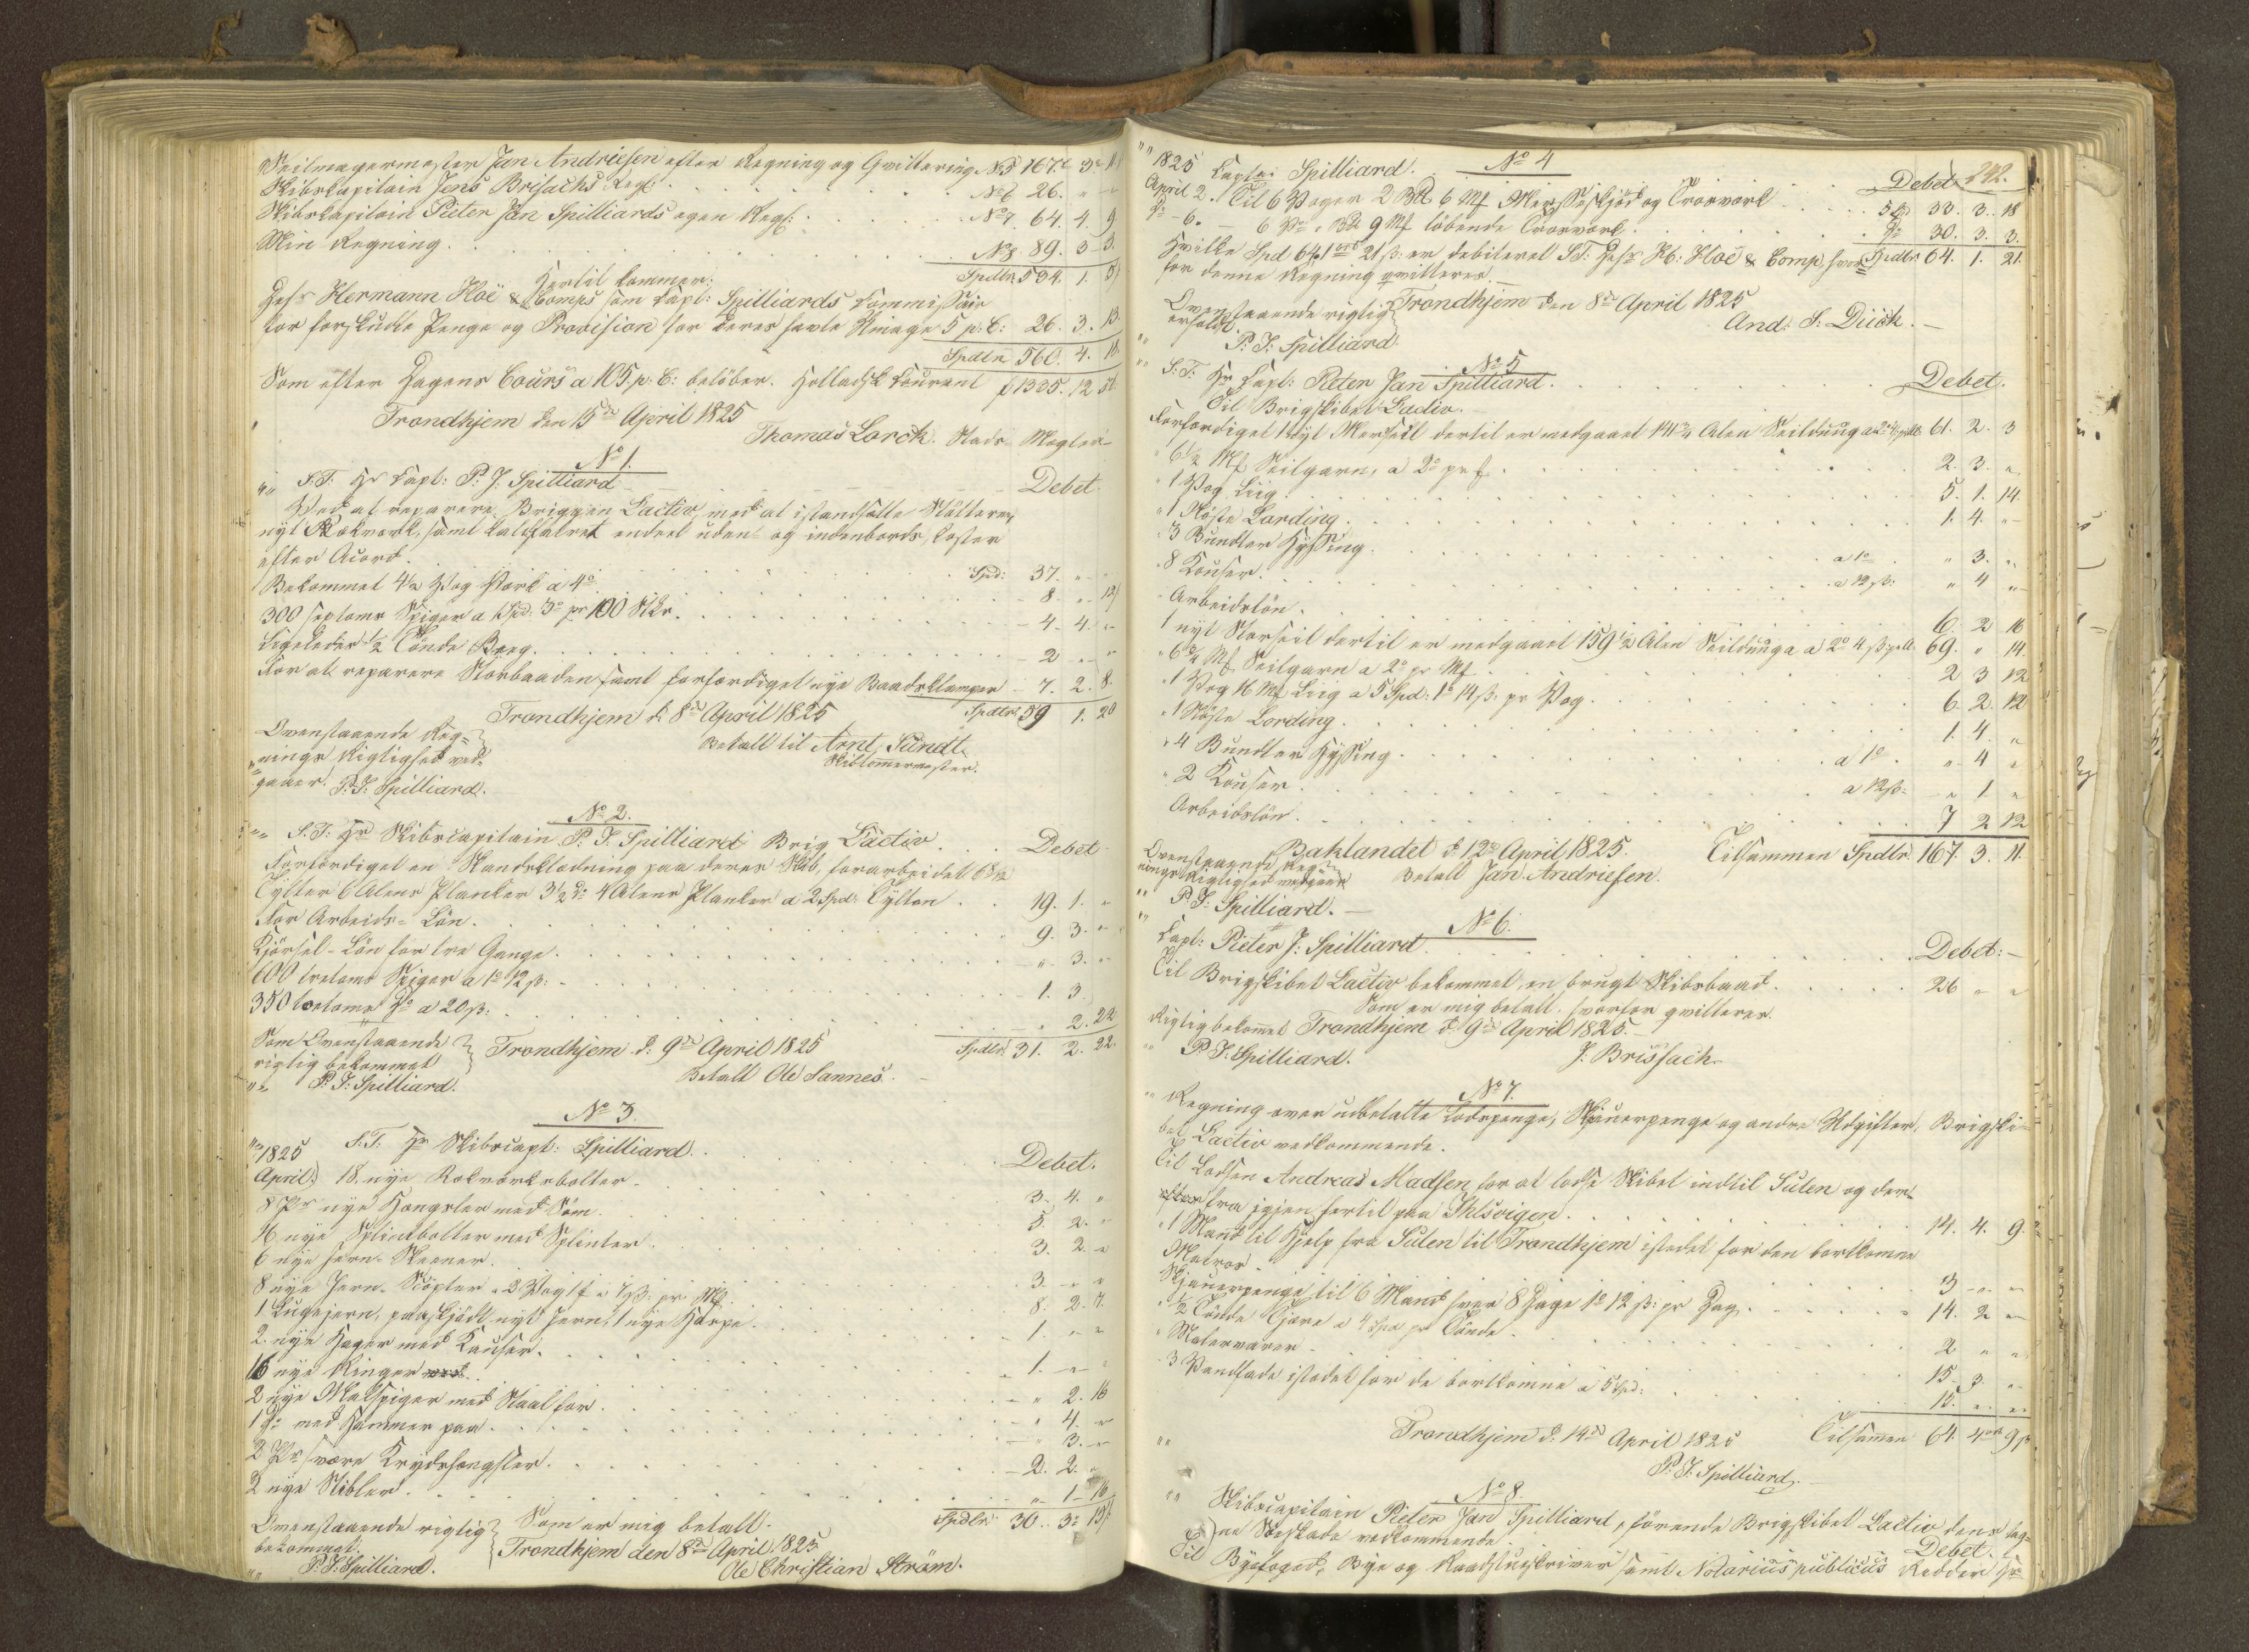 Seilmagermester Jan Andriesen efter Regning og Qvittering No 5 167. 3 11
Skibskapitain Jens Brisachs Regs: No 6 26. " "
Skibskapitain Pieter Jan Spilliards egen Regs: No 7. 64. 4 9
Min Regning No 8 89. 3 3.
Spdlr 534. 1. 5
Hertil kommer:
Hrr Hermann Hoë & Comps som Capt: Spilliards Commissair
for forskudte Penge og Provision for deres havte Umage 5 p: C: 26. 3. 13.
Spdlr 560. 4. 18.
Som efter Dagens Cours a 105 p: C: beløber. Hollandsk Courant f 1335. 12
Trondhjem den 15de April 1825
Thomas Lorck. Stads Megler
No 1.
S.T. Hr Capt: P. J. Spilliard Debet.
Ved at reparere Briggen Lactiv med at istandsætte Støtterne,
nyt Rækværk, samt kalfatret endeel uden- og indenbords, koster
efter Acord Spd: 37. " "
Bekommet 4½ Vog Værk a 4o 8. " 12
300 sextoms Spiger a 1 Spd: 3o pr 100 Stkr. 4. 4. "
Ligeledes ½ Tønde Bæeg. 2 " "
For at reparere Storbaaden samt forfærdiget nye Baadsklamper 7. 2. 8.
Spdlr 59 1. 20
Trondhjem d: 8de April 1825
Ovenstaaende Reg-
nings Rigtighed ved-
gaaer. P: J: Spilliard.
Betalt til Arnt Sundt
Skibtømmermester.
No 2.
S.T: Hr Skibscapitain P. J. Spilliard Brig Lactiv Debet
Forfærdiget en Standsklædning paa deres Skib, forarbeidet 6½
Tylter 6 Alens Planker 3½ do 4 Alens Planker a 2 Spd: Tylten 19. 1. "
For Arbeids-Løn. 9. 3. "
Kjørsel-Løn for tre Gange. " 3. "
600 tretoms Spiger a 1o 12 ß: 1. 3
350 totoms do a 20 ß: " 2. 22
Spdlr 31. 2. 22.
Som Ovenstaaende
rigtig bekommet
P: J: Spilliard.
Trondhjem d: 9de April 1825
Betalt Ole Sannes.
No 3.
1825 S.T. Hr Skibscapt: Spilliard. Debet.
April. 18. nye Rækværksbolter 3. 4. "
8 Pr nye Hengsler med Søm. 5. 2. "
16 nye Splintbolter med Splinter. 3. 2. "
6 nye Jern-Skeener. 3. " "
8 nye Jern-Støtter 2 Vog 1 f a 7 ß: pr Mk 8. 2. 7.
1 Lugejern, paaskjødt nyt Jern, 1 nye Harpe. 1. " "
2 nye Hager med Kauser. 1. " "
16 nye Ringer " 2. 16
2 nye Merlspiger med Staal for " 4. "
1 do med Hammer paa " 3. "
2 Pr svære Krydshengsler. 2. 2. "
2 nye Stibler. " 1 16
Spdlr 30. 3. 15
Ovenstaaende rigtig
bekommet.
P: J: Spilliard.
Som er mig betalt.
Trondhjem den 8de April 1825
Ole Christian Strøm.
242.
No 4
1825 Captei Spilliard. Debet
April 2. Til 6 Voger 2 Bd 6 Mk Mersseskjød og Troaværk 5 Sp 33. 3. 18
do 6. 6 Vo " Bd 9 Mk løbende Troaværk do 30. 3. 3.
Hvilke Spd 64. 1 ort 21 ß: er debiteret S.T: Hrr H: Hoë & Comp, hvor- Spdlr 64. 1. 21.
for denne Regning qvitteres.
Trondhjem den 8de April 1825
Ovenstaaende rigtig
erholdt
P: J: Spilliard.
And: S. Dück.
No 5
S.T: Hr Capt: Pieter Jan Spilliard. Debet.
Til Brigskibet Lactiv.
Forfærdiget 1 nyt Merseil dertil er medgaaet 141¾ Alen Seildug a 2o 4 pr All: 61. 2. 3
6½ Mk Seilgarn, a 2o pr 2. 3. "
1 Vog Liig. 5. 1. 14.
1 Nøste Lording. 1. 4. "
3 Bundter Hyssing. a 1o " 3. "
8 Kouser. a 12 ß: " 4 "
Arbeidsløn. 6. 2 16
1 nyt Storseil dertil er medgaaet 159½ Alen Seildug a 2o 4 ß: pr All: 69. " 14.
6¾ Mk Seilgarn a 2o pr Mk 2 3 12
1 Vog 16 Mk Liig a 5 Spd: 1o 14 ß: pr Vog. 6. 2. 12
1 Nøste Lording. 1. 4. "
4 Bundter Hyssing a 1o " 4 "
2 Kouser. a 12 ß: " 1 "
Arbeidsløn. 7 2 12
Tilsammen Spdlr 167. 3. 11.
Baklandet d: 12te April 1825.
Ovenstaaende Reg-
nings Rigtighed vedgaaer
P: J: Spilliard.
Betalt Jan Andriesen.
No 6.
Capt: Pieter J: Spilliard Debet:
Til Brigskibet Lactiv bekommet, en brugt Skibsbaad. 26 " "
Som er mig betalt, hvorfor qvitteres.
Rigtig bekommet Trondhjem d: 9de April 1825.
P: J: Spilliard. J: Brissach.
No 7.
Regning over udbetalte Lodspenge, Skjauerpenge og andre Udgifter, Brigski-
bet Lactiv vedkommende.
Til Lodsen Andreas Madsen for at lodse Skibet indtil Sulen og der-
fra igjen hertil paa Ihlsvigen. 14. 4. 9.
1 Mand til Hjelp fra Sulen til Trondhjem istedet for den bortkomne
Matros. 3 " "
Skjauerpenge til 6 Mand hver 8 Dage 1o 12 ß: pr Dag. 14. 2 "
½ Tønde Tjære a 4 Spd pr Tønde. 2 " "
Malervarer 15 3. "
3 Vandfade istedet for de bortkomne a 5 Spd: 15. " "
Tilsammen 64. 4 ort 9 ß
Trondhjem d: 14de April 1825
P: J: Spilliard.
No 8.
Skibscapitain Pieter Jan Spilliard, førende Brigskibet Lactiv dens hag-
ne Søeskade vedkommende. Debet.
Til Byefoged, Bye og Raadstueskriver samt Notarius publicus Ridder Hr